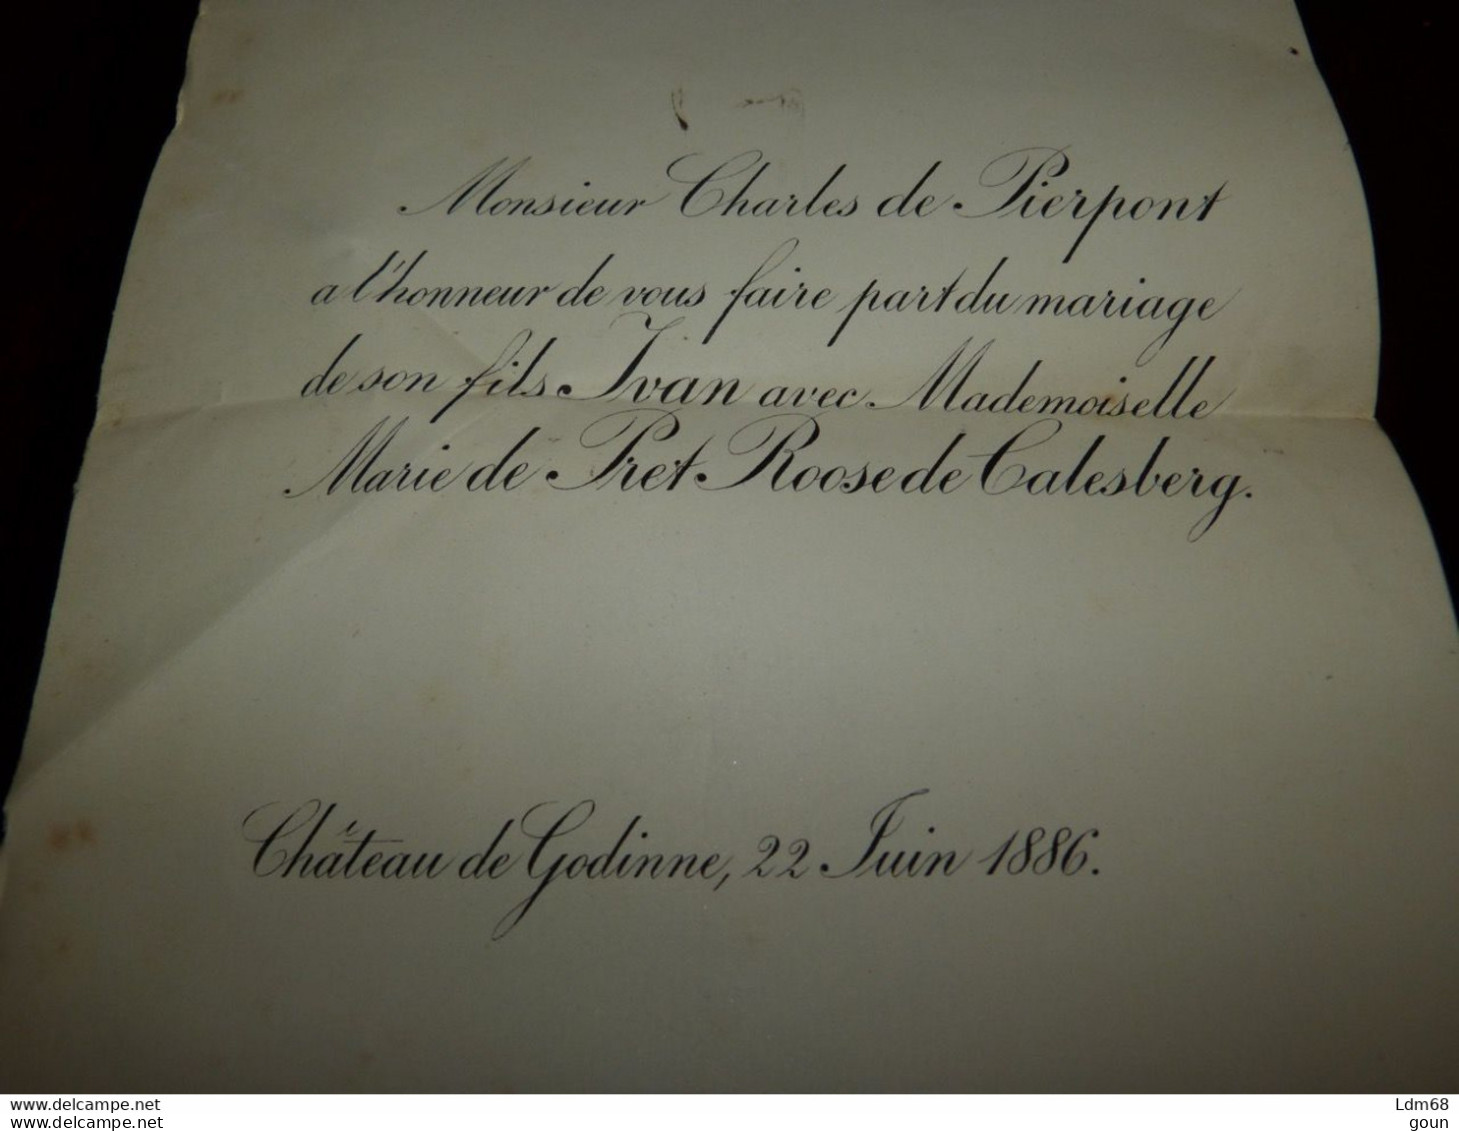 Monsieur Charles de Pierpont
a l'honneur de vous faire part du mariage
de son fils Ivan avec Mademoiselle
Marie de Pret Roose de Calesberg.
Château de Godinne, 22 Juin 1886.
www.delcampe.net
www.delcampe.net
Ldm68
goun